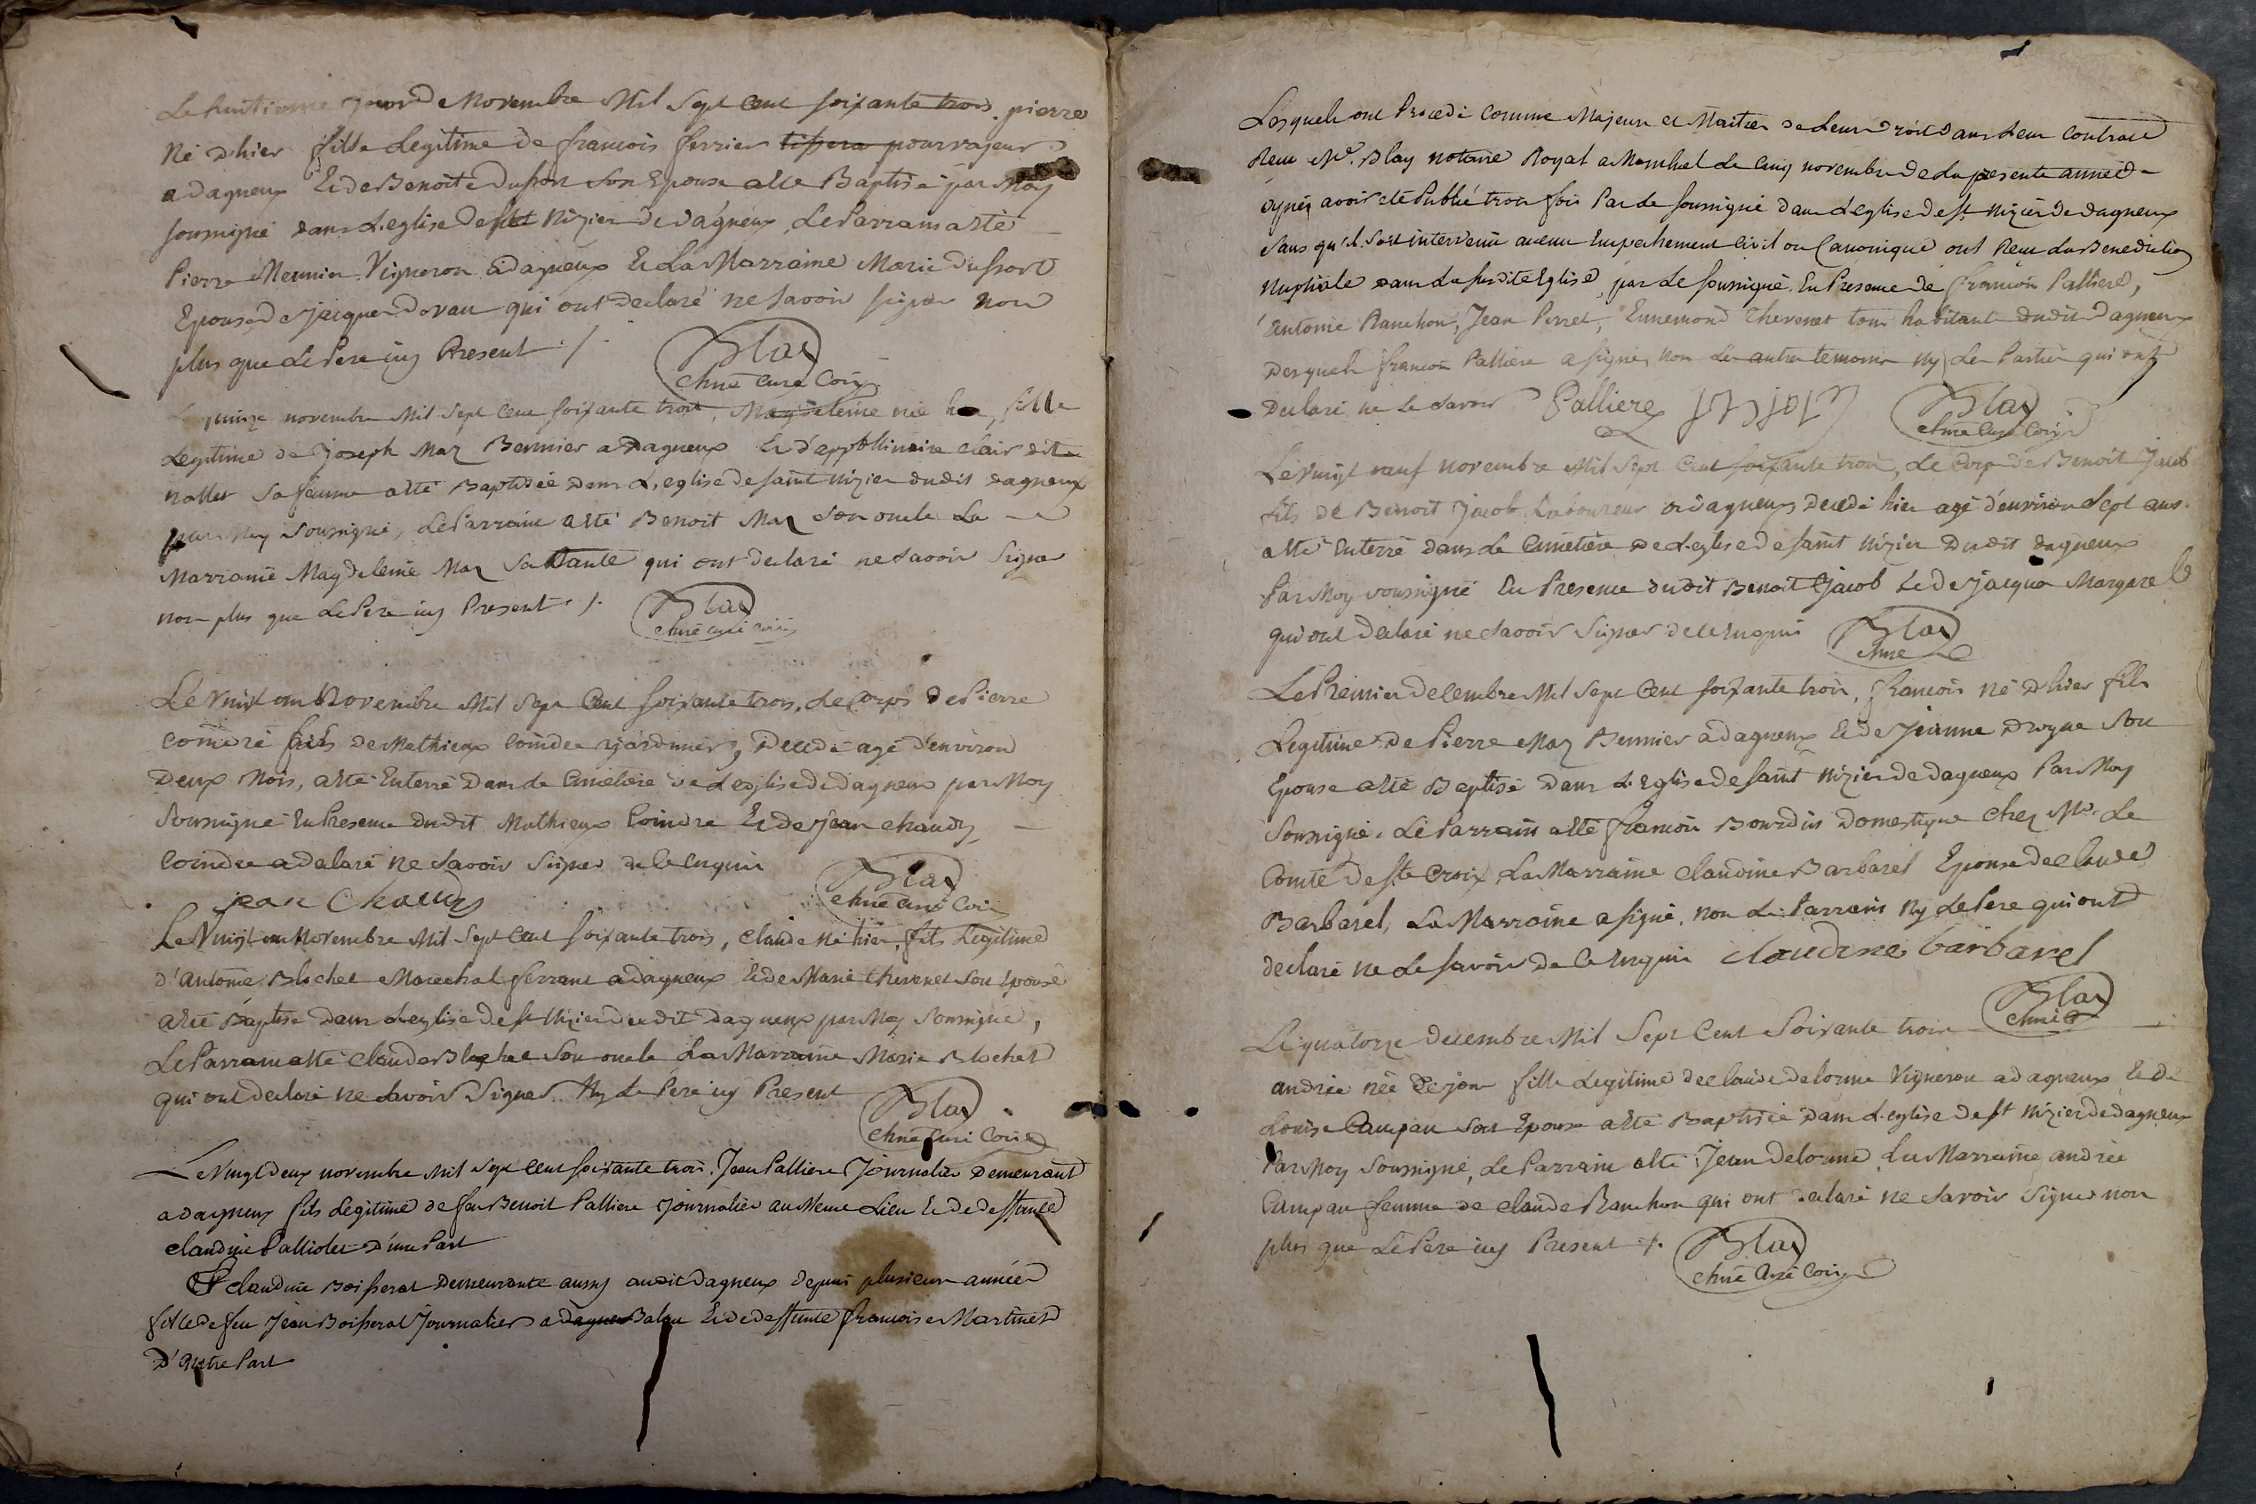 Le huitieme jour de Novembre Mil Sept Cent soixante trois. pierre
Né d'hier fille Legitime de francois ferrier tissera pourvajeur
a dagneux Et de Benoite Dufort son Epouse a été Baptisé par Moy
soussigné dans L'eglise de st Nizier de dagneux, Le Parrain a été
Pierre Meunier Vigneron a dagneux Et La Marraine Marie Dufort
Epouse de jacque dovau qui ont declaré ne savoir signer non
plus que Le Pere icy Present ./.
Blay
curé Coin
quinze novembre Mil Sept Cent soixante trois, Magdeleine née hier, fille
Legitime de joseph Maz Bennier a Dagneux Et d'appollinaire clair dit
nallet sa femme a été Baptisée Dans L'eglise de saint Nizier dudit dagneux
par Moy soussigné, Le Parrain a été Benoit Maz son oncle La
Marraine Magdeleine Maz sa Tante qui ont declaré ne savoir Signer
non plus que Le Pere icy Present ./.
Blay
curé
Le Vingt un Novembre Mil Sept Cent soixante trois, Le corps de Pierre
Coindre fils de Mathieux Coindre jardinier, Decedé agé d'environ
Deux Mois, a été Enterré Dans Le Cimetiere de L'eglise de dagneux par Moy
Soussigné En Presence dudit Mathieux Coindre Et de jean chaudy
Coindre a declaré ne savoir signer de ce enquis
jean Chaudy
Blay
curé Coin
Le Vingt un Novembre Mil Sept Cent soixante trois, claude né hier, fils Legitime
d'antoine Blochet Marechal ferrant a dagneux Et de Marie thevenet son Epouse
a été Baptisé Dans L'eglise de st Nizier dudit Dagneux par Moy soussigné,
Le Parrain a été claude Blochet son oncle La Marraine Marie Blochet
qui ont declaré ne savoir signer Ny Le Pere icy Present
Blay
curé Coin
Le Vingt deux novembre Mil Sept Cent soixante trois. Jean Palliere Journalier Demeurant
a dagneux fils Legitime de feu Benoit Palliere journalier au Meme Lieu Et de deffunte
Claudine Palliolet D'une Part
Et claudine Boisserat Demeurante aussy audit dagneux depuis plusieurs années
fille de feu Jean Boisserat Journalier a dagneux Balan Et de deffunte francoise Martinet
D'autre Part
Lesquels ont Procedé comme Majeurs et Maitres de Leurs droits dans Leur Contract
Reçu Me. Blay notaire Royal a Montluel Le cinq novembre de La presente année
apres avoir été Publié trois fois Par Le soussigné dans L'eglise de st Nizier de dagneux
Sans qu'il soit intervenu aucun Empechement Civil ou Canonique ont Reçu La Benediction
Nuptiale dans La susdite Eglise, par Le soussigné, En Presence de francois Palliere,
Antoine Ranchon, Jean Perret, Ennemond thevenet tous habitant dudit Dagneux
Desquels francois Palliere a signé, non Les autres temoins Ny Les Parties qui ont
Declaré ne Le savoir Palliere
Blay
curé Coin
Le Vingt neuf novembre Mil Sept Cent soixante trois, Le Corps de Benoit Jacob
fils de Benoit Jacob Laboureur a dagneux Decedé hier agé d'environ Sept ans
a été Enterré dans Le Cimetiere de L'eglise de saint Nizier Dudit dagneux
Par Moy soussigné En Presence dudit Benoit Jacob Et de jacque Margare
qui ont declaré ne savoir signer de ce enquis
Blay
curé
Le Premier decembre Mil Sept Cent soixante trois, francois né d'hier fils
Legitime de Pierre Maz Bennier a dagneux Et de jeanne son
Epouse a été Baptisé dans L'Eglise de saint Nizier de dagneux Par Moy
Soussigné. Le Parrain a été francois Bourdin Domestique chez Mr. Le
Comte de ste Croix, La Marraine claudine Barbarel Epouse de claude
Barbarel, La Marraine a signé, non Le Parrain Ny Le Pere qui ont
declaré ne Le savoir de ce Enquis claudine barbarel
Blay
curé
Le quatorze decembre Mil Sept Cent Soixante trois
andrée née de jour fille Legitime de claude delorme Vigneron a dagneux Et de
Louise Campan son Epouse a été Baptisée dans L'eglise de st Nizier de dagneux
Par Moy Soussigné, Le Parrain a été Jean delorme La Marraine andrée
Campan femme de claude Ranchon qui ont declaré ne savoir signer non
plus que Le Pere icy Present ./.
Blay
curé Coin